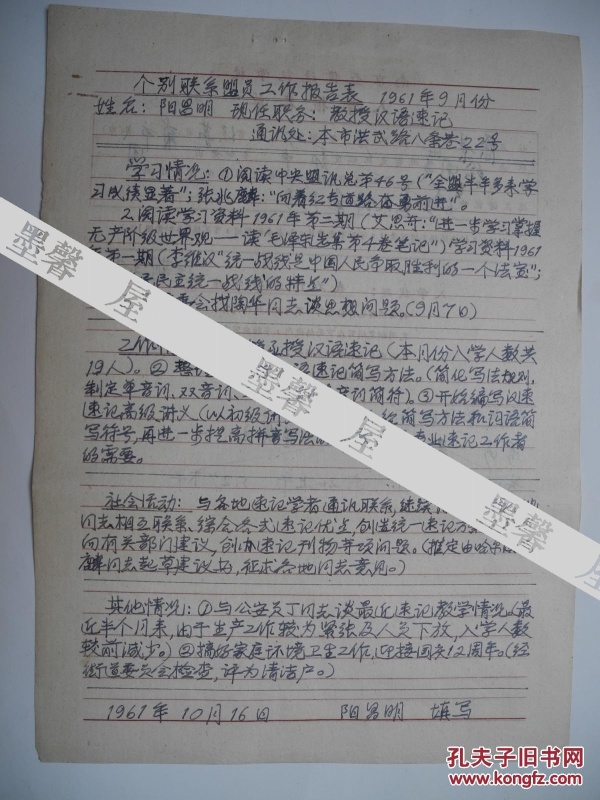 个别联系盟员工作报告表 1961年9月份
姓名：阳昌明 现任职务：教授汉语速记
通讯处：本市洪武路八条巷22号
学习情况：①阅读中央盟讯总第46号（“全盟半年多来学
习成绩显著”；张兆麟：“向着红专道路奋勇前进”。
2.阅读学习资料1961年第二期（艾思奇：“进一步学习掌握
无产阶级世界观——读‘毛泽东选集第4卷笔记”）学习资料1961
年第一期（李维汉“统一战线是中国人民争取胜利的一个法宝”；
民主统一战线的特点”）
会找陶华同志谈思想问题。（9月7日）
2.工作 授汉语速记（本月份入学人数共
19人）。② 语速记简写方法。（简化写法规则，
制定单音词、双音词、 音词简符）。③开始编写汉文
速记高级讲义（以初级 统简写方法和词语简
写符号，再进一步提高拼音写法 专业速记工作者
的需要。
社会活动：与各地速记学者通讯联系，继续
同志相互联系，综合各式速记优点，创造统一速记方
向有关部门建议，创办速记刊物等项问题。（推定由哈尔
麟同志起草建议书，征求各地同志意见。）
其他情况：①与公安员丁同志谈最近速记教学情况。（最
近半个月来，由于生产工作较为紧张及人员下放，入学人数
较前减少。）②搞好家庭环境卫生工作，迎接国庆12周年。（经
街道委员会检查，评为清洁户。）
1961年10月16日 阳昌明 填写
墨馨屋
墨馨屋
孔夫子旧书网
www.kongfz.com